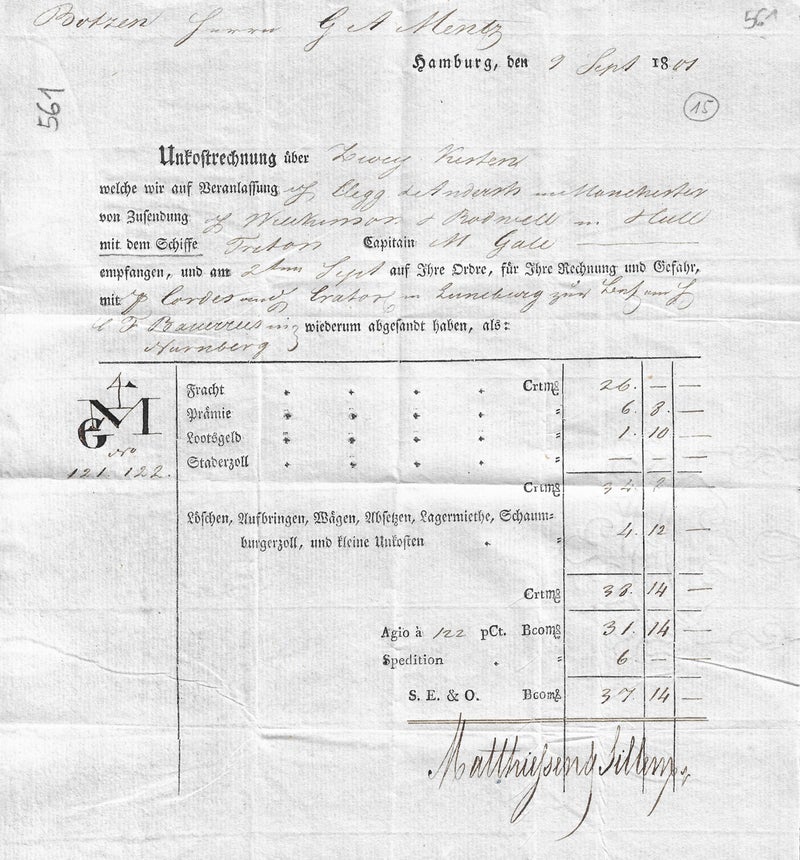 Botzen Herrn G A Mentz
561
Hamburg, den 9 Sept 1801
15
561
Unkostrechnung über Zwey Kisten
welche wir auf Veranlassung Clegg & Anderst in Manchester
von Zusendung Wilkinson & Rodwell in Hull
mit dem Schiffe Triton Capitain M Gale
empfangen, und am 2ten Sept auf Ihre Ordre, für Ihre Rechnung und Gefahr,
mit Cordes und Crator in Luneburg zur
C F in wiederum abgesandt haben, als:
Nürnberg
4
GM
No
121. 122.
Fracht Crtm͟g 26. — —
Prämie „ 6. 8. —
Lootsgeld „ 1. 10 —
Staderzoll „ — — —
Crtm͟g 34. 2 —
Löschen, Aufbringen, Wägen, Absetzen, Lagermiethe, Schaum-
burgerzoll, und kleine Unkosten „ 4. 12 —
Crtm͟g 38. 14 —
Agio à 122 pCt. Bcom͟g 31. 14 —
Spedition „ 6 — —
S. E. & O. Bcom͟g 37. 14 —
Matthiessen & Sillem